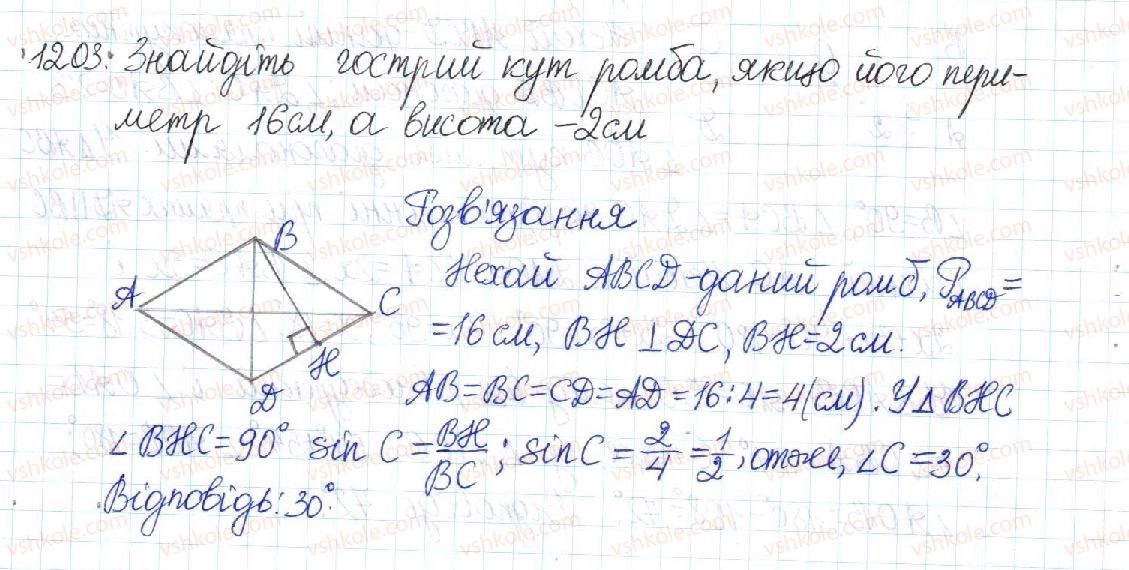 1203. Знайдіть гострий кут ромба, якщо його пери-
метр 16см, а висота -2см
Розв'язання
B
A
C
H
D
Нехай ABCD-даний ромб, P_ABCD =
=16 см, BH ⊥ DC, BH=2см.
AB=BC=CD=AD=16:4=4(см). У Δ BHC
∠BHC=90° sin C = BH/BC; sin C = 2/4 = 1/2; отже, ∠C =30°.
Відповідь: 30°.
vshkole.com